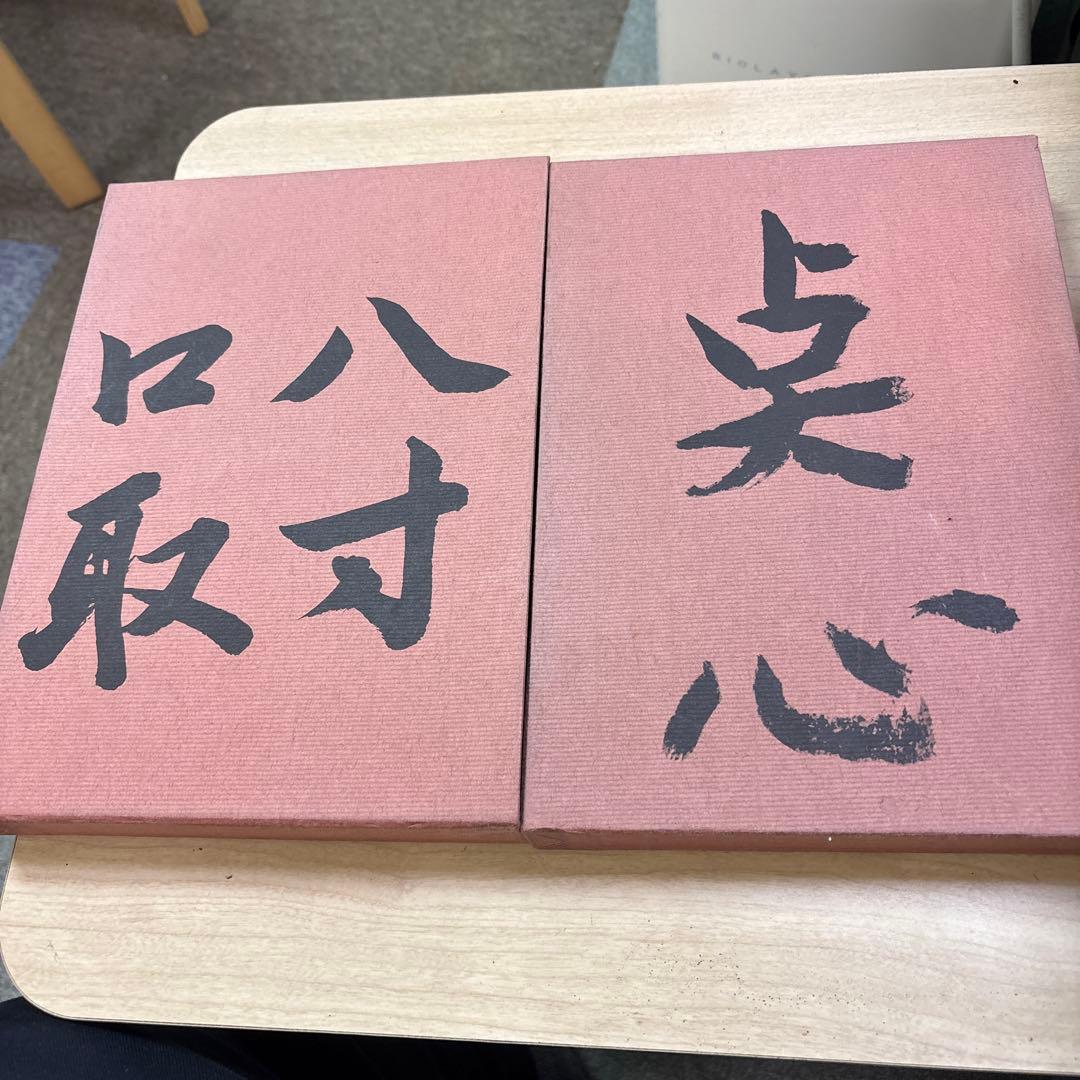 点心
八寸
口取